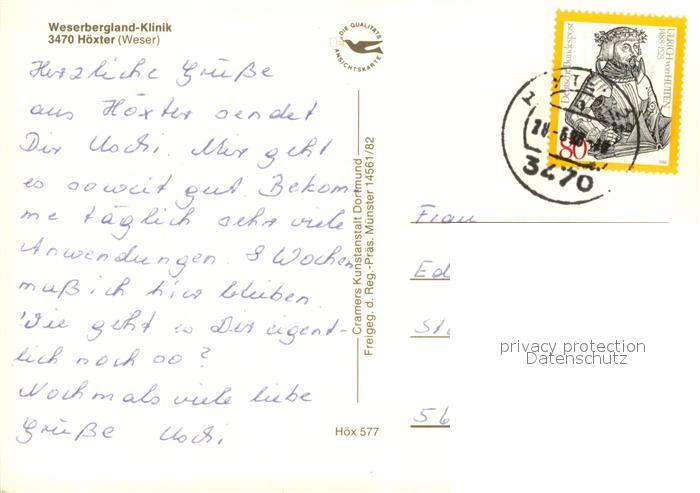 Weserbergland-Klinik
3470 Höxter (Weser)
DIE QUALITÄTS
ANSICHTSKARTE
Herzliche Grüße
aus Höxter sendet
Dir Uschi. Mir geht
es soweit gut. Bekom
me täglich sehr viele
Anwendungen. 8 Wochen
muß ich hier bleiben.
Wie geht es Dir eigent-
lich noch so?
Nochmals viele liebe
Grüße Uschi
Cramers Kunstanstalt Dortmund
Freigeg. d. Reg.-Präs. Münster 14561/82
Höx 577
Deutsche Bundespost
ULRICH von HUTTEN
1488-1523
80
3470
Frau
Ed
St
56
privacy protection
Datenschutz